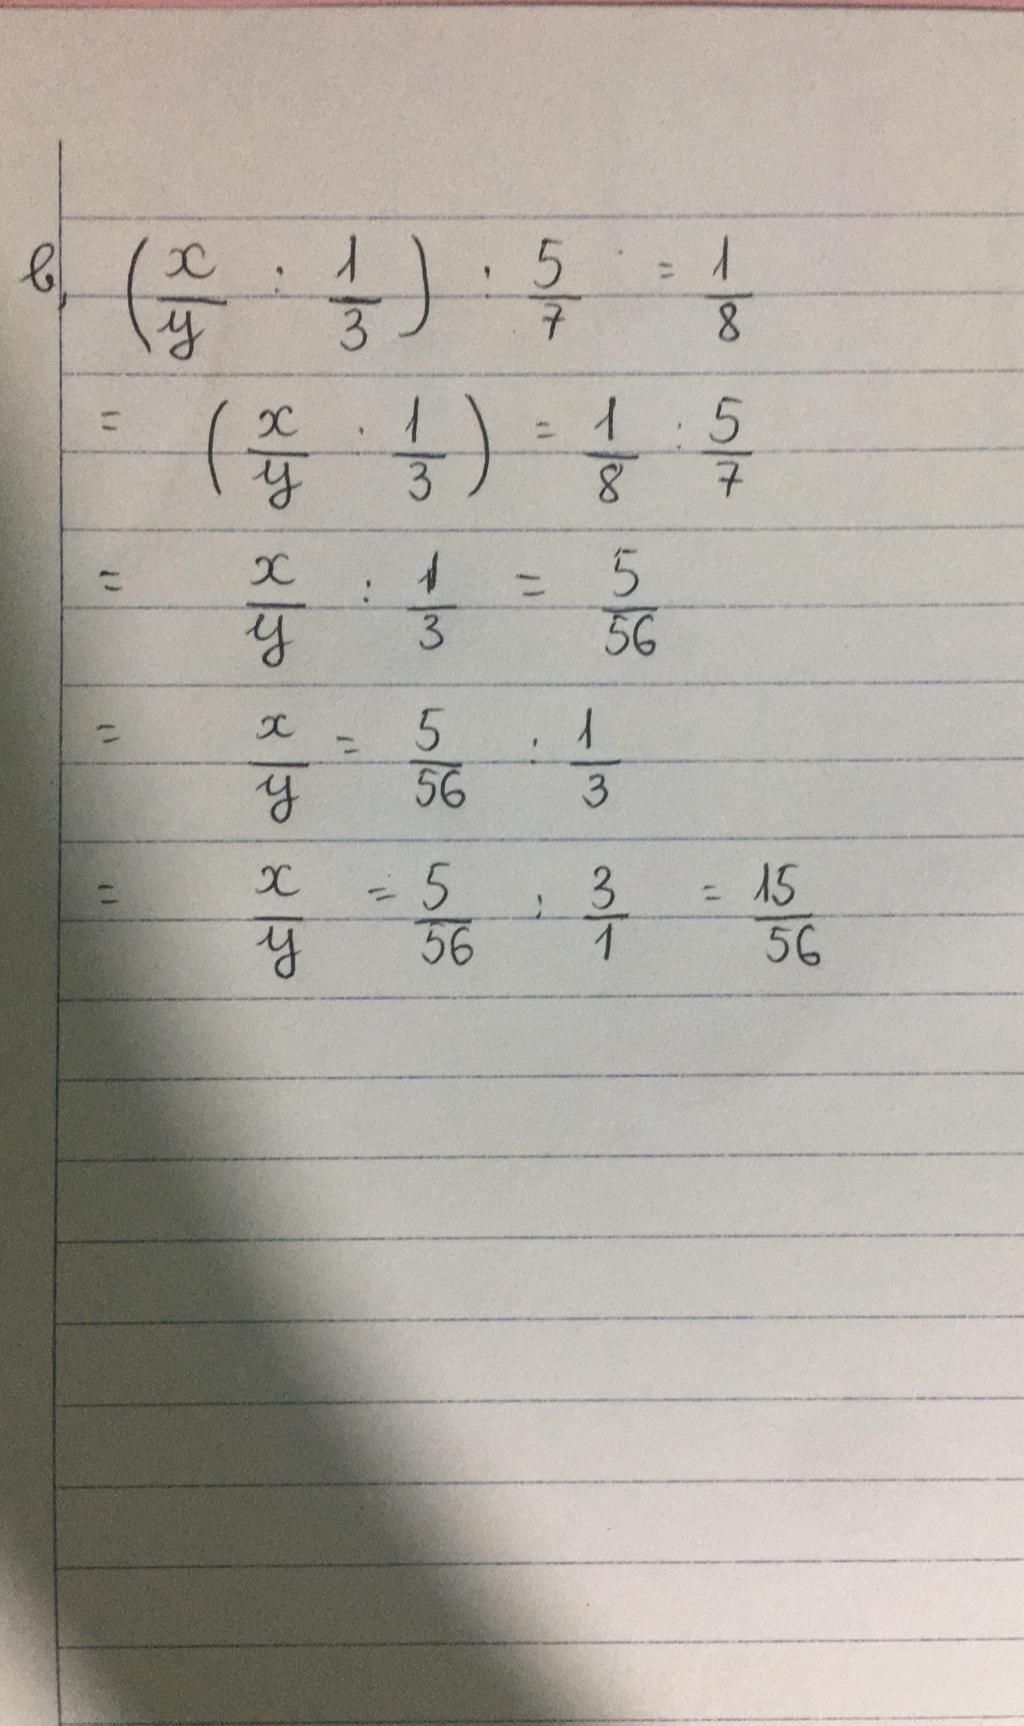 b, (x/y : 1/3) : 5/7 = 1/8
= (x/y : 1/3) = 1/8 : 5/7
= x/y : 1/3 = 5/56
= x/y = 5/56 : 1/3
= x/y = 5/56 : 3/1 = 15/56